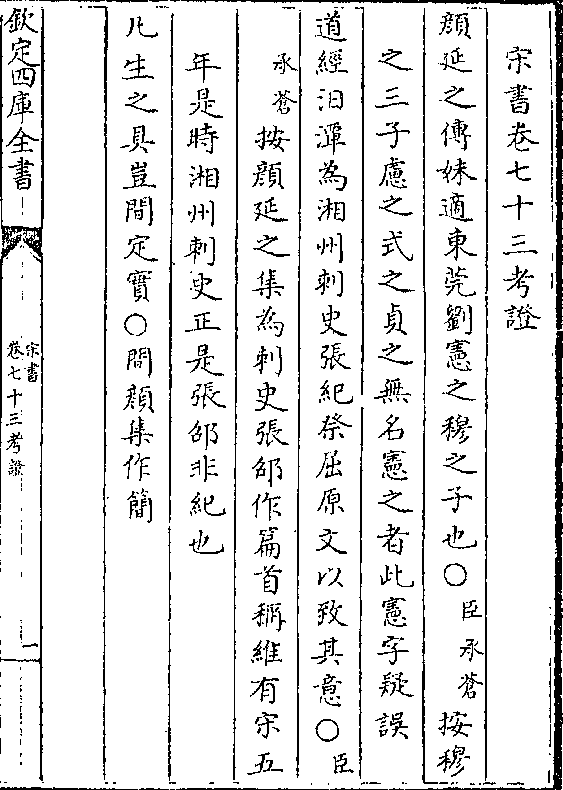 宋書卷七十三考證
顔延之傳妹適東莞劉憲之穆之子也○臣承蒼按穆
之三子慮之式之貞之無名憲之者此憲字疑誤
道經汨潭為湘州刺史張紀祭屈原文以致其意○臣
承蒼按顔延之集為刺史張邵作篇首稱維有宋五
年是時湘州刺史正是張邵非紀也
凡生之具豈間定實○間顔集作簡
欽定四庫全書
宋書
卷七十三考證
一